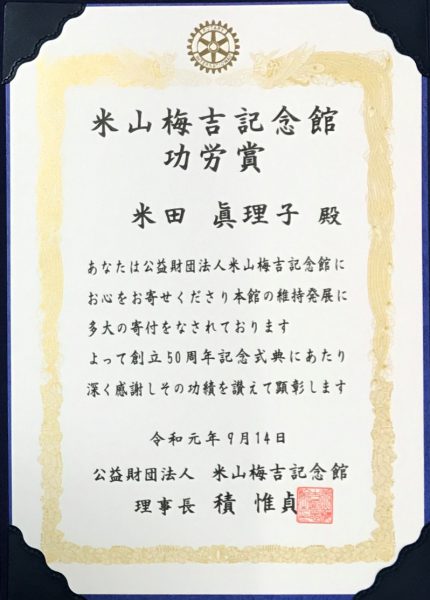 米山梅吉記念館
功労賞
米田 眞理子 殿
あなたは公益財団法人米山梅吉記念館に
お心をお寄せくださり本館の維持発展に
多大の寄付をなされております
よって創立50周年記念式典にあたり
深く感謝しその功績を讃えて顕彰します
令和元年9月14日
公益財団法人 米山梅吉記念館
理事長 積 惟貞